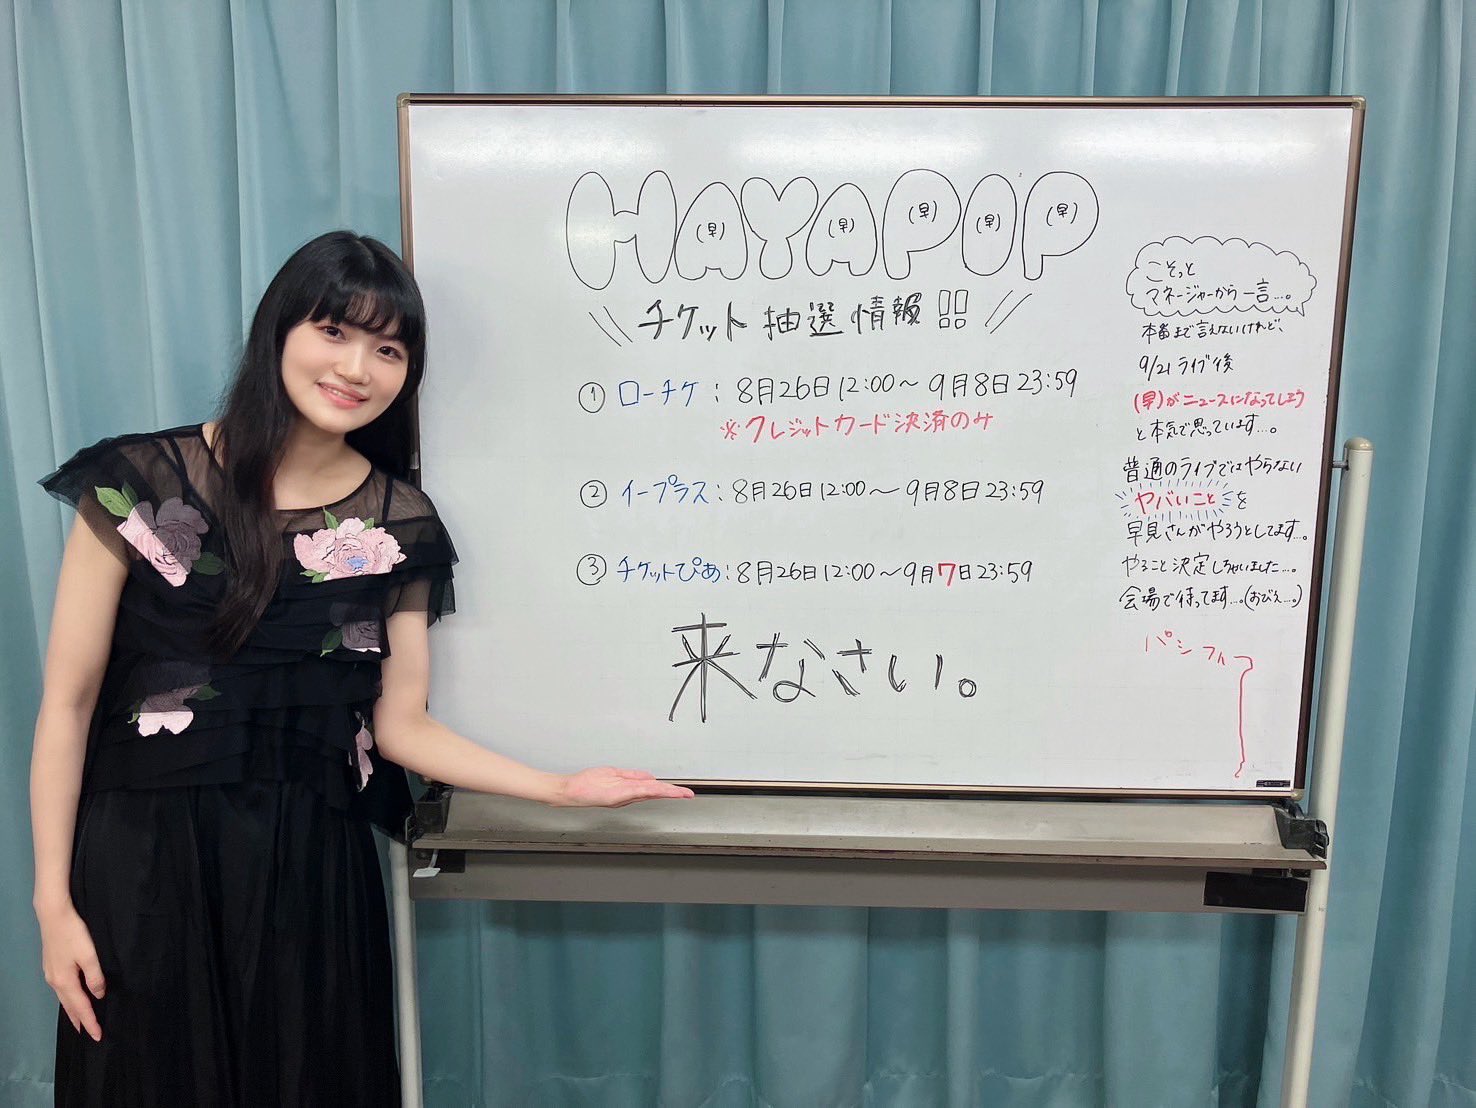 HAYAPOP
(早) (早) (早) (早) (早)
チケット抽選情報!!
① ローチケ:8月26日12:00〜9月8日23:59
※クレジットカード決済のみ
② イープラス:8月26日12:00〜9月8日23:59
③ チケットぴあ:8月26日12:00〜9月7日23:59
来なさい。
こそっと
マネージャーから一言…。
本番まで言えないけれど、
9/21ライブ後
(早)がニュースになってしまう
と本気で思っています…。
普通のライブではやらない
ヤバいことを
早見さんがやろうとしてます…。
やること決定しちゃいました…。
会場で待ってます…。(おびえ…。)